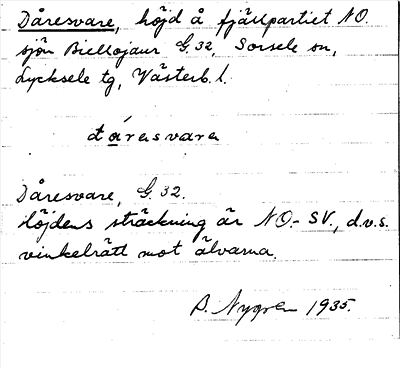 Dåresvare, höjd å fjällpartiet NO.
sjön Biellojaur G.32, Sorsele sn,
Lycksele tg, Västerb. l.
dáresvaren
Dåresvare, G.32.
Höjdens sträckning är NO.- SV., d.v.s.
vinkelrätt mot älvarna.
B. Nygren 1935.